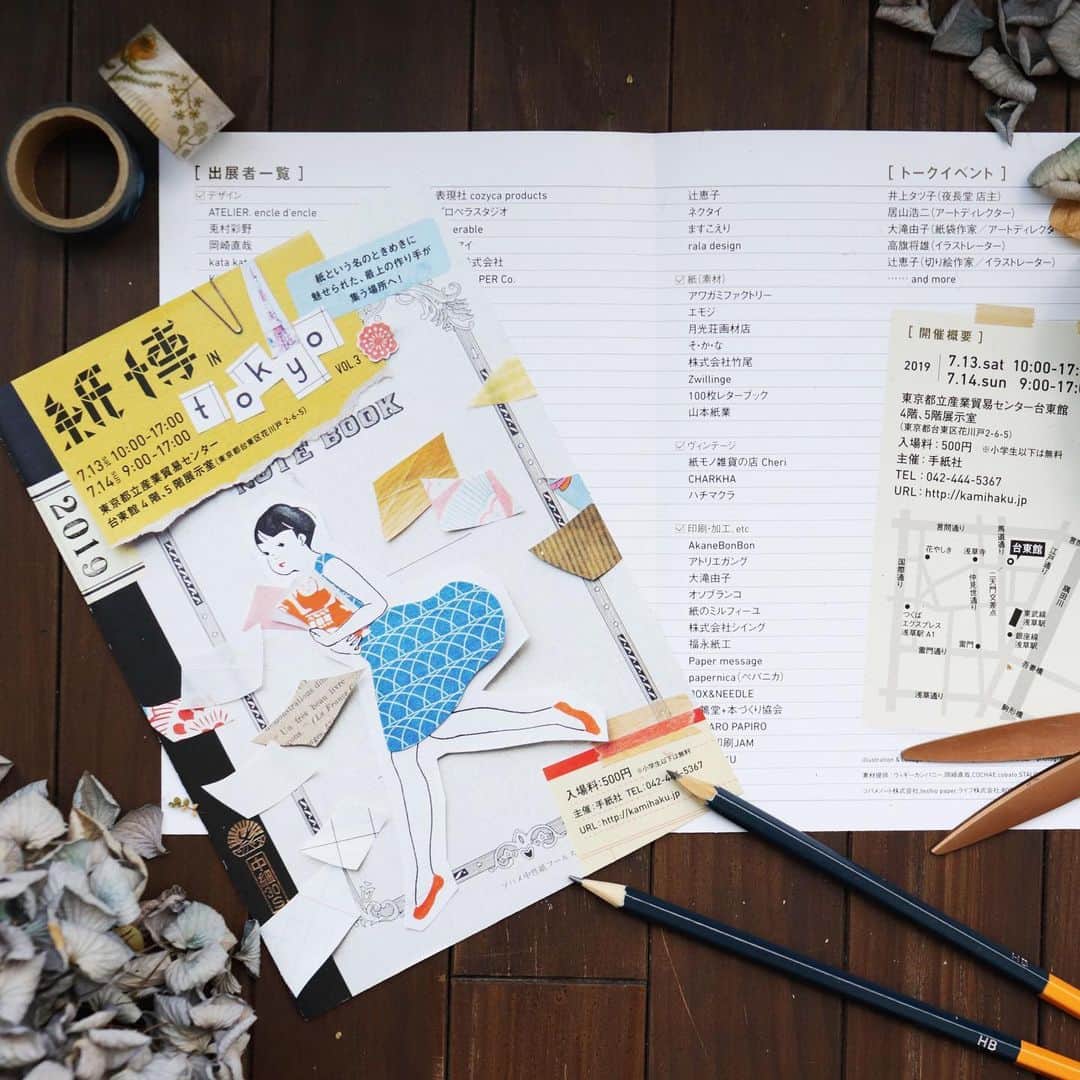 [ 出展者一覧 ]
デザイン
ATELIER. encle d'encle
兎村彩野
岡崎直哉
kata kat
表現社 cozyca products
プロペラスタジオ
erable
式会社
PER Co.
辻恵子
ネクタイ
ますこえり
rala design
紙(素材)
アワガミファクトリー
エモジ
月光荘画材店
そ・か・な
株式会社竹尾
Zwillinge
100枚レターブック
山本紙業
ヴィンテージ
紙モノ雑貨の店 Cheri
CHARKHA
ハチマクラ
印刷・加工, etc
AkaneBonBon
アトリエガング
大滝由子
オソブランコ
紙のミルフィーユ
株式会社シイング
福永紙工
Paper message
papernica(ぺパニカ)
OX&NEEDLE
堂+本づくり協会
ARO PAPIRO
印刷JAM
[ トークイベント ]
井上タツ子(夜長堂 店主)
居山浩二(アートディレクター)
大滝由子(紙袋作家/アートディレクタ
高旗将雄(イラストレーター)
辻恵子(切り絵作家/イラストレーター)
…… and more
[ 開催概要 ]
2019
7.13.sat 10:00-17:
7.14.sun 9:00-17:
東京都立産業貿易センター台東館
4階、5階展示室
(東京都台東区花川戸2-6-5)
入場料:500円 ※小学生以下は無料
主催:手紙社
TEL:042-444-5367
URL:http://kamihaku.jp
言問通り
馬道通り
江戸通り
花やしき
浅草寺
台東館
国際通り
仲見世通り
二天門交差点
隅田川
つくば
エクスプレス
浅草駅 A1
東武線
浅草駅
銀座線
浅草駅
雷門
雷門通り
吾妻橋
浅草通り
駒形橋
紙という名のときめきに
魅せられた、最上の作り手が
集う場所へ!
紙博 IN
tokyo
VOL.3
7.13 土 10:00-17:00
7.14 日 9:00-17:00
東京都立産業貿易センター
台東館 4階、5階展示室(東京都台東区花川戸2-6-5)
2019
NOTE BOOK
入場料:500円 ※小学生以下は無料
主催:手紙社 TEL:042-444-5367
URL:http://kamihaku.jp
ツバメ中性紙フールス
HB
HB